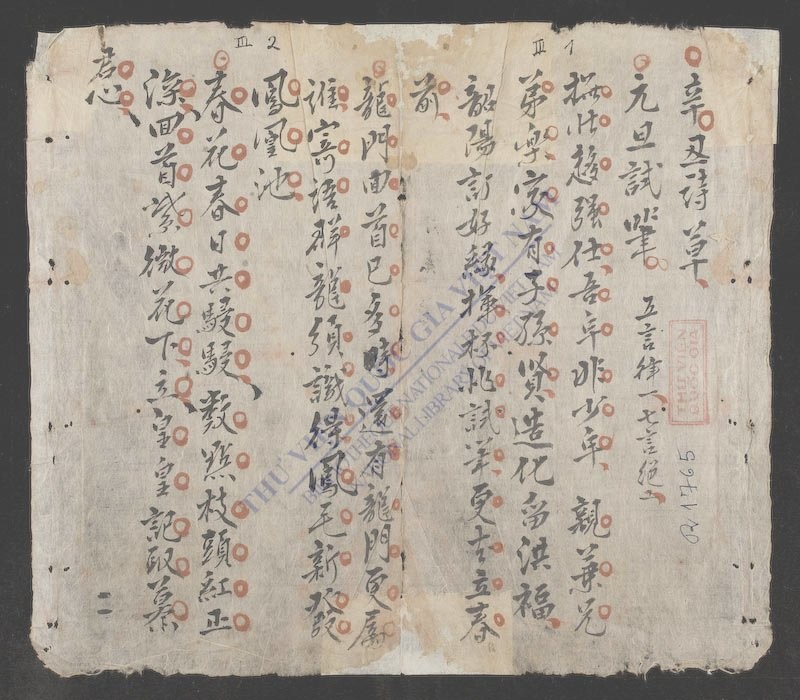 辛丑詩草
元旦試筆 五言律一七言絕二
撫壯趨强仕吾年非少年 親兼兄
弟樂家有子孫賢造化留洪福
韶陽訂好緣椒杯試筆更吉立春
前
龍門回首已多時還有龍門更屬
誰寄語群龍須識得鳳毛新發
鳳凰池
春花春日共駸駸數點枝頭紅正
深回首紫微花下立皇皇記取慕
君心
III 1
III 2
R 1765
THƯ VIỆN QUỐC GIA VIỆT NAM